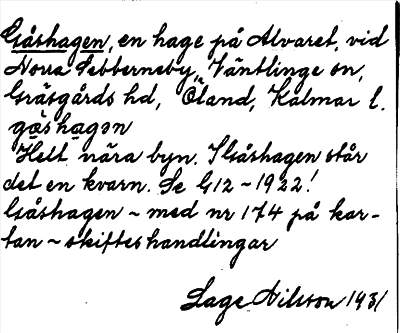 Gåshagen, en hage på Alvaret, vid
Norra Sebberneby, Ventlinge sn,
Gräsgårds hd, Öland, Kalmar l.
gåshagən
Helt nära byn. I Gåshagen står
det en kvarn. Se G12 ~ 1922!
Gåshagen ~ med nr 174 på kar-
tan ~ skifteshandlingar
Lage Nilsson 1931